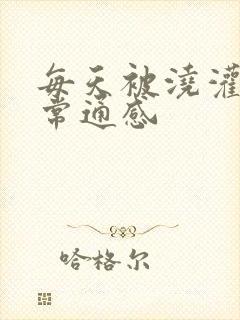 每天被浇灌
常通感
哈格尔